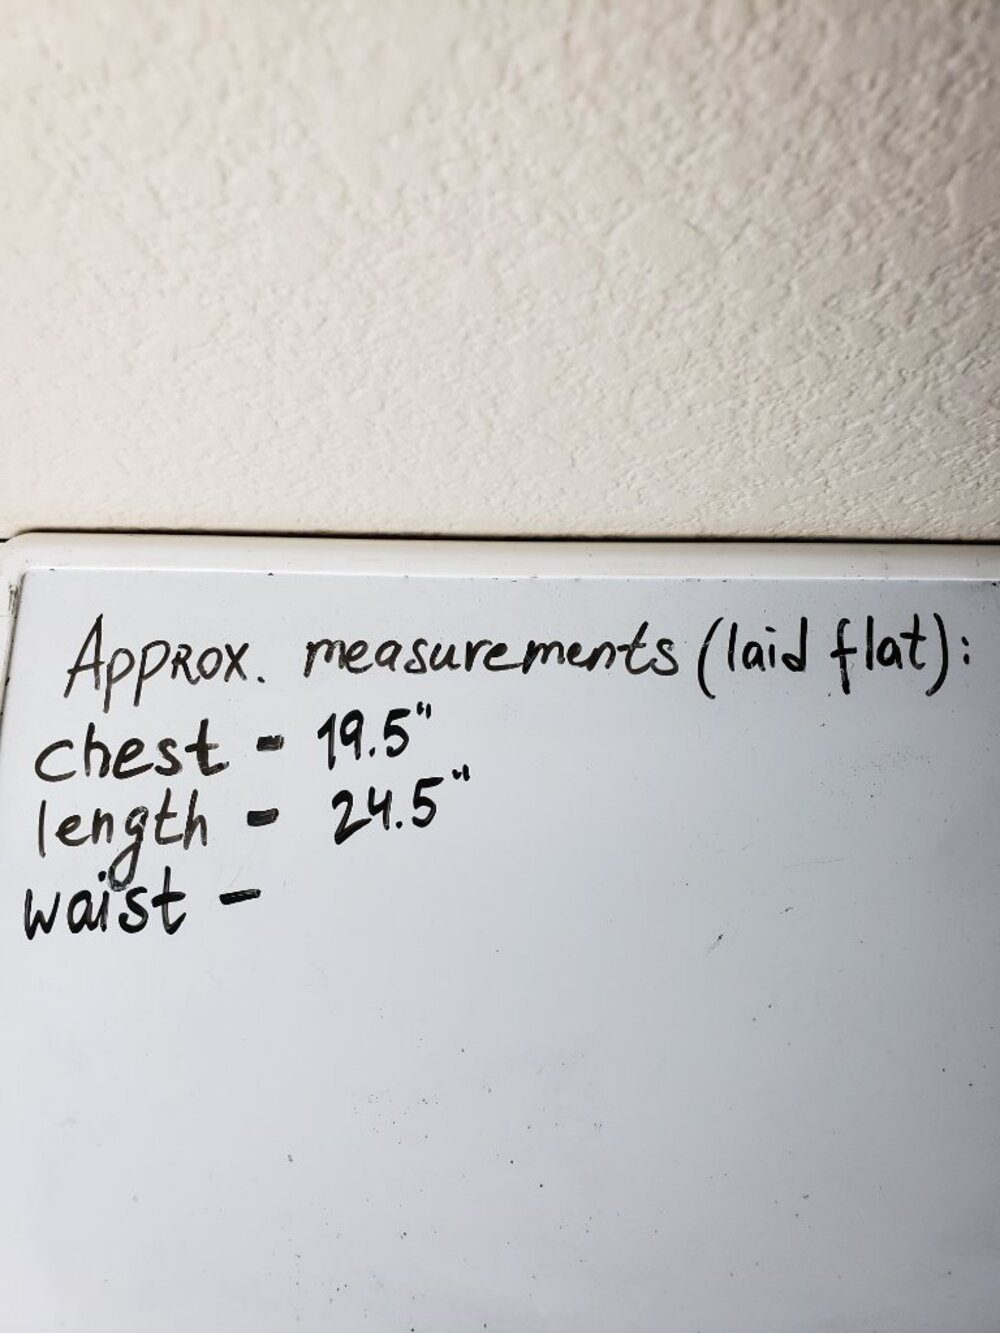 Approx. measurements (laid flat):
chest - 19.5"
length - 24.5"
waist -